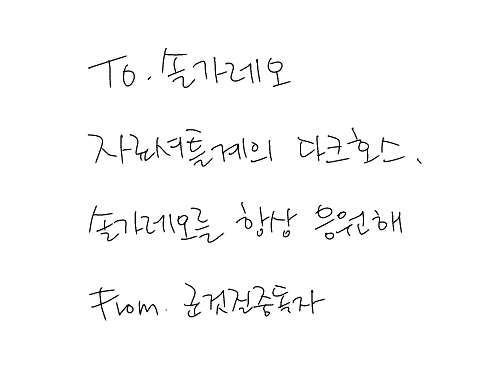 To. 솔가레오
자료셔틀계의 다크호스.
솔가레오를 항상 응원해
From. 군것질중독자